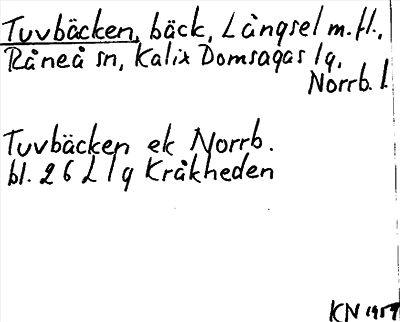 Tuvbäcken, bäck, Långsel m.fl.,
Råneå sn, Kalix Domsagas lg,
Norrb. l.
Tuvbäcken ek Norrb.
bl. 26 L l g Kråkheden
KN 1959